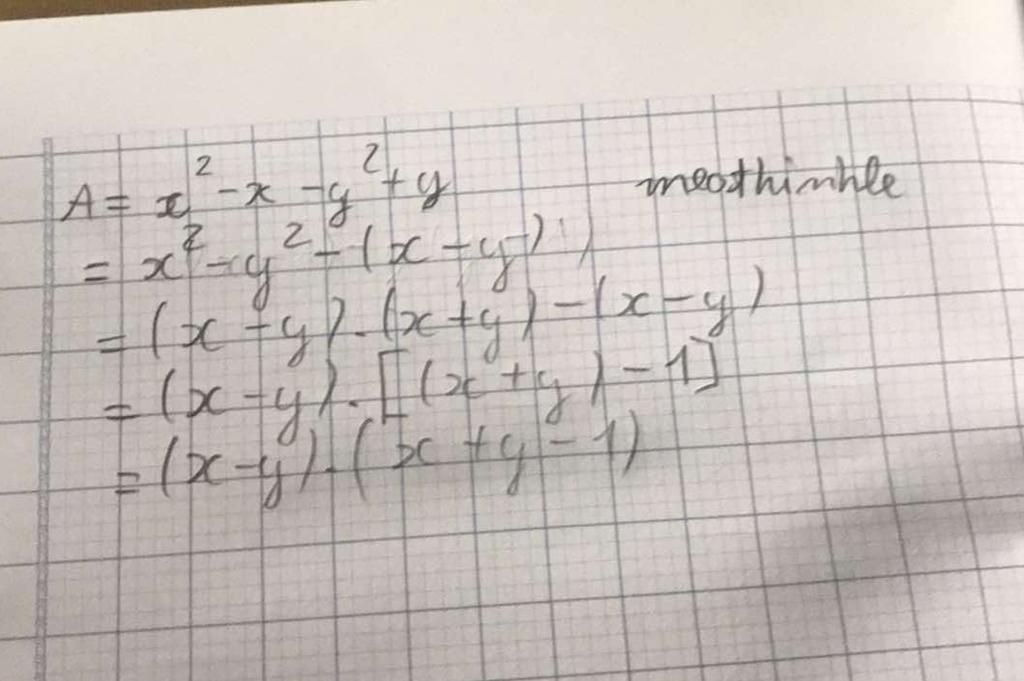 A = x² - x - y² + y meothinhle
= x² - y² - (x - y)
= (x - y).(x + y) - (x - y)
= (x - y).[(x + y) - 1]
= (x - y).(x + y - 1)